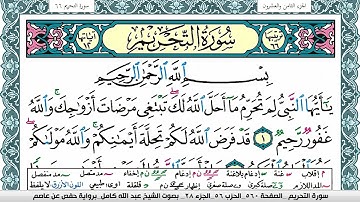 الجزء الثامن والعشرون
سورة التحريم ٦٦
سُورَةُ التَّحْرِيمِ
بِسْمِ ٱللَّهِ ٱلرَّحْمَٰنِ ٱلرَّحِيمِ
يَٰٓأَيُّهَا ٱلنَّبِىُّ لِمَ تُحَرِّمُ مَآ أَحَلَّ ٱللَّهُ لَكَ تَبْتَغِى مَرْضَاتَ أَزْوَٰجِكَ وَٱللَّهُ
غَفُورٌ رَّحِيمٌ ١ قَدْ فَرَضَ ٱللَّهُ لَكُمْ تَحِلَّةَ أَيْمَٰنِكُمْ وَٱللَّهُ مَوْلَىٰكُمْ
سورة التحريم الصفحة ٥٦٠ الحزب ٥٦ الجزء ٢٨ بصوت الشيخ عبد الله كامل برواية حفص عن عاصم